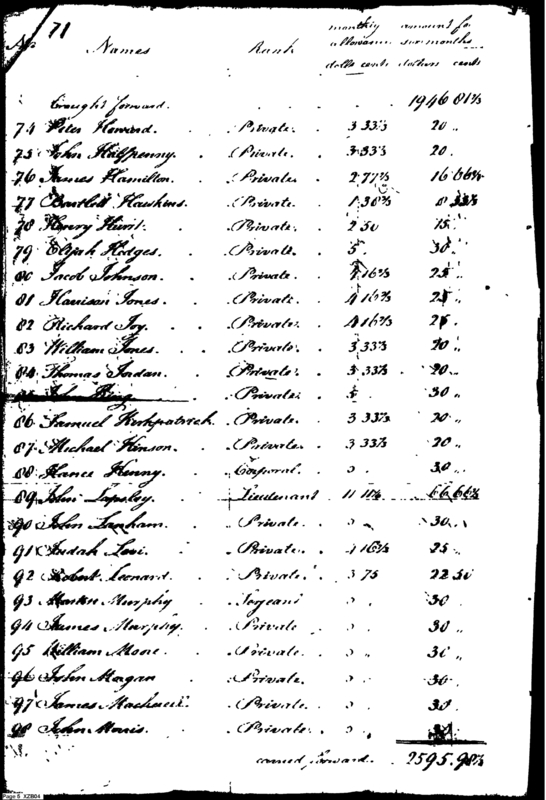 71
monthly amount for
No Names Rank allowance six months
dolls cents dollars cents
Brought forward. 1946 81⅓
74 Peter Howard. Private. 3 33⅓ 20 "
75 John Halfpenny. Private. 3 33⅓ 20.
76 James Hamilton. Private. 2 77⅔ 16 66⅔
77 Bartlett Hawkins. Private. 1 38⅔ 8 33⅓
78 Henry Hunt. Private. 2 50 15.
79 Elijah Hedges. Private. 5. 30
80 Jacob Johnson. Private. 4 16⅔ 25 "
81 Harrison Jones. Private. 4 16⅔ 25 "
82 Richard Joy. Private. 4 16⅔ 25.
83 William Jones. Private. 3 33⅓ 20 "
84 Thomas Jordan. Private. 3 33⅓ 20.
John King Private. 5 30 "
86 Samuel Kirkpatrick. Private. 3 33⅓ 20 "
87 Michael Hinson. Private. 3 33⅓ 20 "
88 Corporal. 30.
89 John Lapsley. Lieutenant 11 11⅓ 66 66⅔
90 John Lanham. Private. 30.
91 Judah Levi. Private. 4 16⅔ 25 "
92 Robert Leonard. Private. 3 75 22 50
93 Murphy Sergeant 30
94 James Murphy. Private 30 "
95 William Private. 30 "
96 John Private. 30.
97 James Private. 30
98 John Morris. Private.
carried forward. 2595.98⅓
Page 5 XZB04